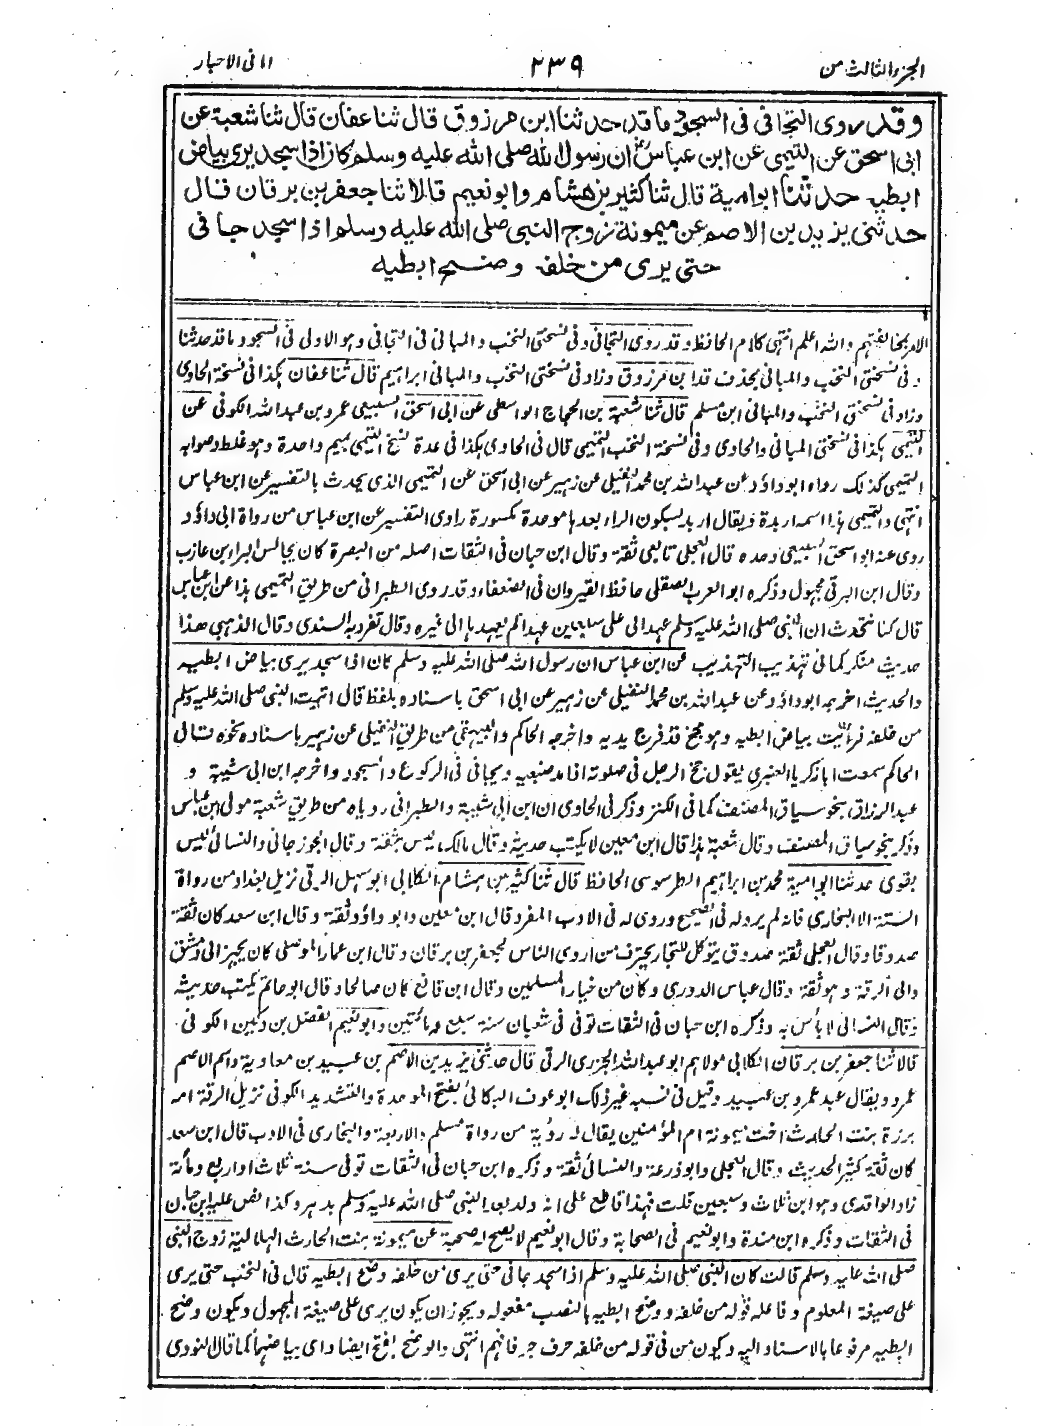 الجزء الثالث من ٢٣٩ امانی الاحبار
وقد روی التجافی فی السجود ما قد حدثنا ابن مرزوق قال ثنا عفان قال ثنا شعبة عن
ابی اسحق عن التمیمی عن ابن عباسؓ ان رسول الله صلی الله علیه وسلم کان اذا سجد یری بیاض
ابطیه حدثنا ابو امیة قال ثنا کثیر بن هشام وابو نعیم قالا ثنا جعفر بن برقان قال
حدثنی یزید بن الاصم عن میمونة زوج النبی صلی الله علیه وسلم اذا سجد جافی
حتی یری من خلفه وضح ابطیه
الامر بخالفتهم والله اعلم انتهی کلام الحافظ وقد روی التجافی وفی نسختی النخب والمبانی فی التجافی وهو الاولی فی السجود ما قد حدثنا
وفی نسختی النخب والمبانی بحذف قد ابن مرزوق وزاد فی نسختی النخب والمبانی ابراهیم قال ثنا عفان هکذا فی نسخة الحاوی
وزاد فی نسختی النخب والمبانی ابن مسلم قال ثنا شعبة بن الحجاج الواسطی عن ابی اسحق السبیعی عمرو بن عبد الله الکوفی عن
التیمی هکذا فی نسختی المبانی والحاوی وفی نسخة النخب التمیمی قال فی الحاوی هکذا فی عدة نسخ التیمی بمیم واحدة وهو غلط وصوابه
التمیمی کذلک رواه ابو داؤد عن عبد الله بن محمد النفیلی عن زهیر عن ابی اسحق عن التمیمی الذی یحدث بالتفسیر عن ابن عباس
انتهی والتمیمی هذا اسمه اربدة ویقال اربد بسکون الراء بعدها موحدة مکسورة راوی التفسیر عن ابن عباس من رواة ابی داؤد
روی عنه ابو اسحق السبیعی وحده قال العجلی تابعی ثقة وقال ابن حبان فی الثقات اصله من البصرة کان یجالس البراء بن عازب
وقال ابن البرقی مجهول وذکره ابو العرب الصقلی حافظ القیروان فی الضعفاء وقد روی الطبرانی من طریق التمیمی هذا عن ابن عباس
قال کنا نتحدث ان النبی صلی الله علیه وسلم عهد الی علی سبعین عهدا لم یعهدها الی غیره وقال تفرد به السندی وقال الذهبی هذا
حدیث منکر کما فی تهذیب التهذیب عن ابن عباس ان رسول الله صلی الله علیه وسلم کان اذا سجد یری بیاض ابطیه
والحدیث اخرجه ابو داؤد عن عبد الله بن محمد النفیلی عن زهیر عن ابی اسحق باسناده بلفظ قال اتیت النبی صلی الله علیه وسلم
من خلفه فرأیت بیاض ابطیه وهو مجخ قد فرج یدیه واخرجه الحاکم والبیهقی من طریق النفیلی عن زهیر باسناده نحوه قال
الحاکم سمعت ابا زکریا العنبری یقول جخ الرجل فی صلوته اذا مد ضبعیه ویجافی فی الرکوع والسجود واخرجه ابن ابی شیبة و
عبد الرزاق بنحو سیاق المصنف کما فی الکنز وذکر فی الحاوی ان ابن ابی شیبة والطبرانی رویاه من طریق شعبة مولی ابن عباس
وذکر بنحو سیاق المصنف وقال شعبة هذا قال ابن معین لا یکتب حدیثه وقال مالک لیس بثقة وقال الجوزجانی والنسائی لیس
بقوی حدثنا ابو امیة محمد بن ابراهیم الطرسوسی الحافظ قال ثنا کثیر بن هشام الکلابی ابو سهل الرقی نزیل بغداد من رواة
الستة الا البخاری فانه لم یرو له فی الصحیح وروی له فی الادب المفرد قال ابن معین وابو داؤد ثقة وقال ابن سعد کان ثقة
صدوقا وقال العجلی ثقة صدوق یتوکل للتجار یحترف من اروی الناس لجعفر بن برقان وقال ابن عمار الموصلی کان یجیز الی دمشق
والی الرقة وهو ثقة وقال عباس الدوری وکان من خیار المسلمین وقال ابن قانع کان صالحا وقال ابو حاتم یکتب حدیثه
وقال النسائی لا بأس به وذکره ابن حبان فی الثقات توفی فی شعبان سنة سبع ومائتین وابو نعیم الفضل بن دکین الکوفی
قالا ثنا جعفر بن برقان الکلابی مولاهم ابو عبد الله الجزری الرقی قال حدثنی یزید بن الاصم بن عبید بن معاویة واسم الاصم
عمرو ویقال عبد عمرو بن عبید وقیل فی نسبه غیر ذلک ابو عوف البکائی بفتح الموحدة والتشدید الکوفی نزیل الرقة امه
برزة بنت الحارث اخت میمونة ام المؤمنین یقال له رؤیة من رواة مسلم والاربعة والبخاری فی الادب قال ابن سعد
کان ثقة کثیر الحدیث وقال العجلی وابو زرعة والنسائی ثقة وذکره ابن حبان فی الثقات توفی سنة ثلاث او اربع ومائة
زاد الواقدی وهو ابن ثلاث وسبعین قلت فهذا قاطع علی انه ولد بعد النبی صلی الله علیه وسلم بدهر وکذا نص علیه ابن حبان
فی الثقات وذکره ابن مندة وابو نعیم فی الصحابة وقال ابو نعیم لا یصح له صحبة عن میمونة بنت الحارث الهلالیة زوج النبی
صلی الله علیه وسلم قالت کان النبی صلی الله علیه وسلم اذا سجد جافی حتی یری من خلفه وضح ابطیه قال فی النخب حتی یری
علی صیغة المعلوم وفاعله قوله من خلفه ووضح ابطیه بالنصب مفعوله ویجوز ان یکون یری علی صیغة المجهول ویکون وضح
ابطیه مرفوعا بالاسناد الیه ویکون من فی قوله من خلفه حرف جر فافهم انتهی والوضح بفتح الضاد ای بیاضهما کما قال النووی